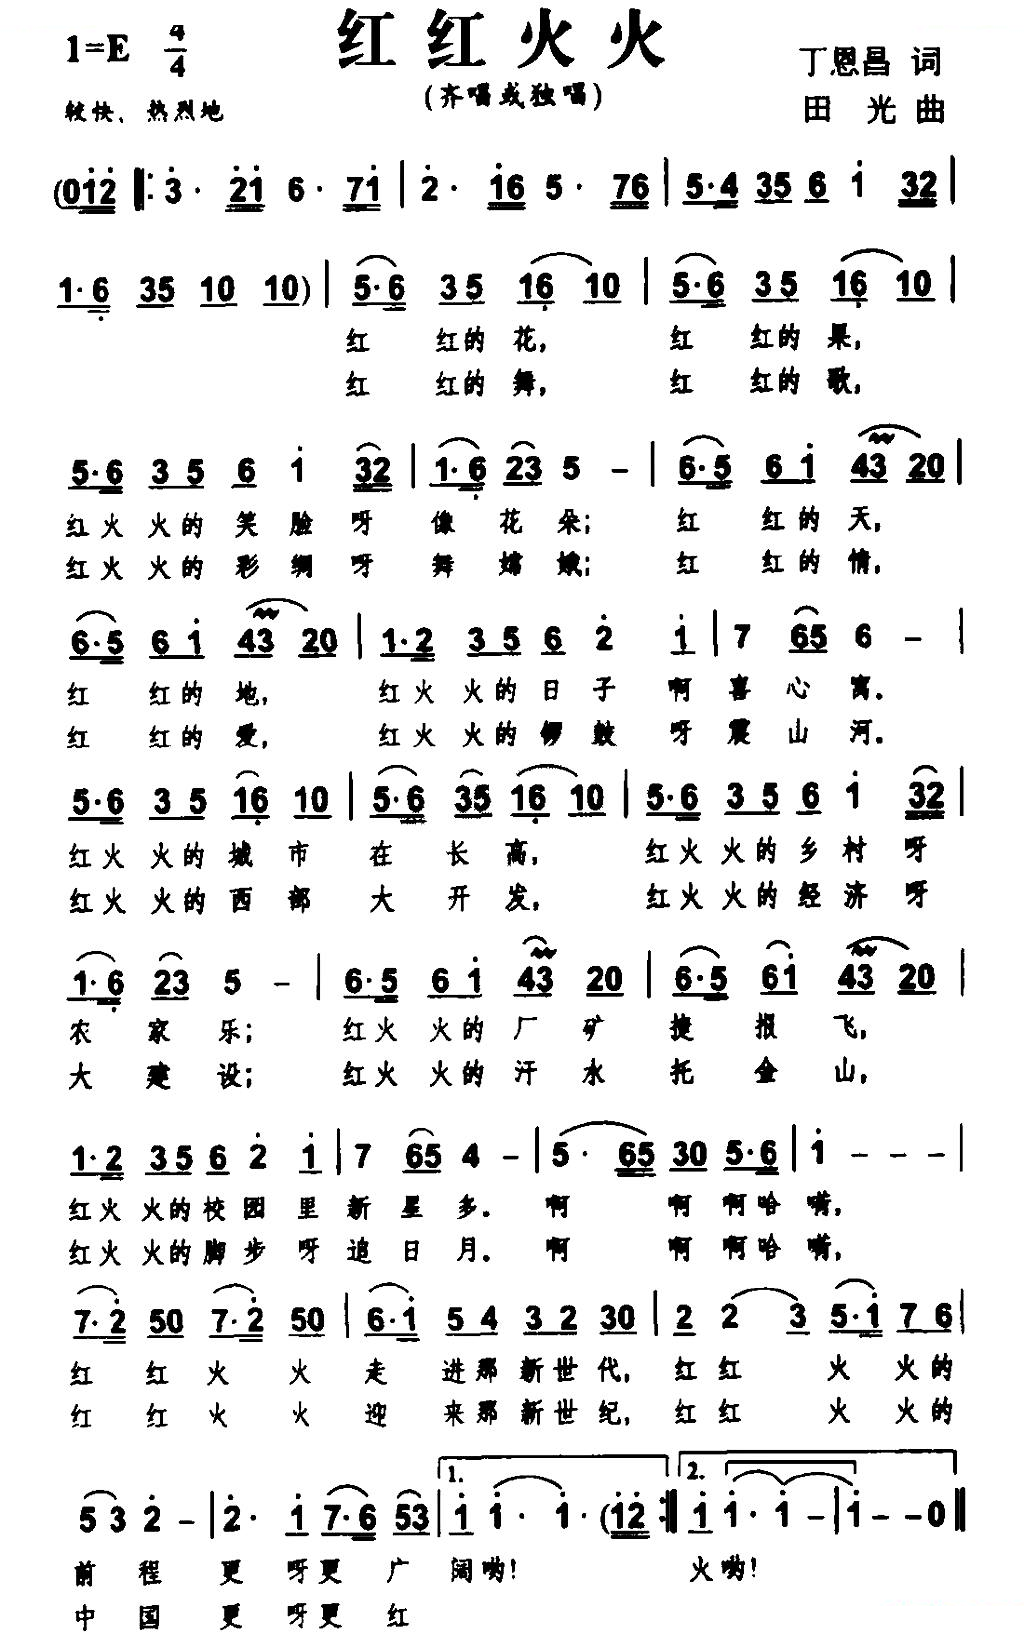 红红火火
1=E 4/4
(齐唱或独唱)
丁恩昌 词
较快、热烈地
田 光 曲
(0i̇2̇ ‖: 3̇· 2̇i̇ 6· 7i̇ | 2̇· i̇6 5· 76 | 5·4 35 6 i̇ 32 |
1·6̣ 35 10 10) | 5·6 35 16̣ 10 | 5·6 35 16̣ 10 |
红 红的 花, 红 红的 果,
红 红的 舞, 红 红的 歌,
5·6 35 6 i̇ 32 | 1·6̣ 23 5 – | 6·5 6i̇ 43 20 |
红火 火的 笑 脸 呀 像 花 朵; 红 红的 天,
红火 火的 彩 绸 呀 舞 嫦 娥; 红 红的 情,
6·5 6i̇ 43 20 | 1·2 35 6 2̇ i̇ | 7 65 6 – |
红 红的 地, 红火 火的 日 子 啊 喜 心 窝.
红 红的 爱, 红火 火的 锣 鼓 呀 震 山 河.
5·6 35 16̣ 10 | 5·6 35 16̣ 10 | 5·6 35 6 i̇ 32 |
红火 火的 城 市 在 长 高, 红火 火的 乡 村 呀
红火 火的 西 部 大 开 发, 红火 火的 经 济 呀
1·6̣ 23 5 – | 6·5 6i̇ 43 20 | 6·5 6i̇ 43 20 |
农 家 乐; 红火 火的 厂 矿 捷 报 飞,
大 建 设; 红火 火的 汗 水 托 金 山,
1·2 35 6 2̇ i̇ | 7 65 4 – | 5· 65 30 5·6 | i̇ – – – |
红火 火的 校 园 里 新 星 多. 啊 啊 啊哈 嗬,
红火 火的 脚 步 呀 追 日 月. 啊 啊 啊哈 嗬,
7·2̇ 50 7·2̇ 50 | 6·i̇ 54 32 30 | 2 2 3 5·i̇ 76 |
红 红 火 火 走 进那 新世 代, 红 红 火 火的
红 红 火 火 迎 来那 新世 纪, 红 红 火 火的
53 2̇ – | 2̇· i̇ 7·6 53 | 1. i̇ i̇· i̇· (i̇2̇ :‖ 2. i̇ i̇· i̇ – | i̇ – – 0 ‖
前 程 更 呀更 广 阔哟! 火哟!
中 国 更 呀更 红